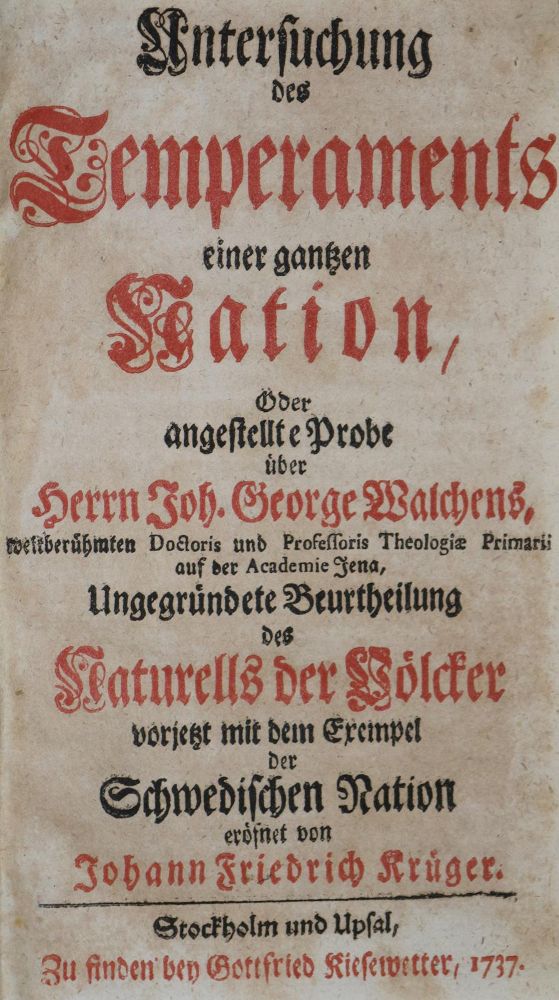 Untersuchung
des
Temperaments
einer gantzen
Nation,
Oder
angestellte Probe
über
Herrn Joh. George Walchens,
weltberühmten Doctoris und Professoris Theologiæ Primarii
auf der Academie Jena,
Ungegründete Beurtheilung
des
Naturells der Völcker
vorjetzt mit dem Exempel
der
Schwedischen Nation
eröfnet von
Johann Friedrich Krüger.
Stockholm und Upsal,
Zu finden bey Gottfried Kiesewetter, 1737.